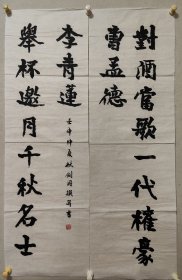 對酒當歌一代權豪
曹孟德
舉杯邀月千秋名士
李青蓮